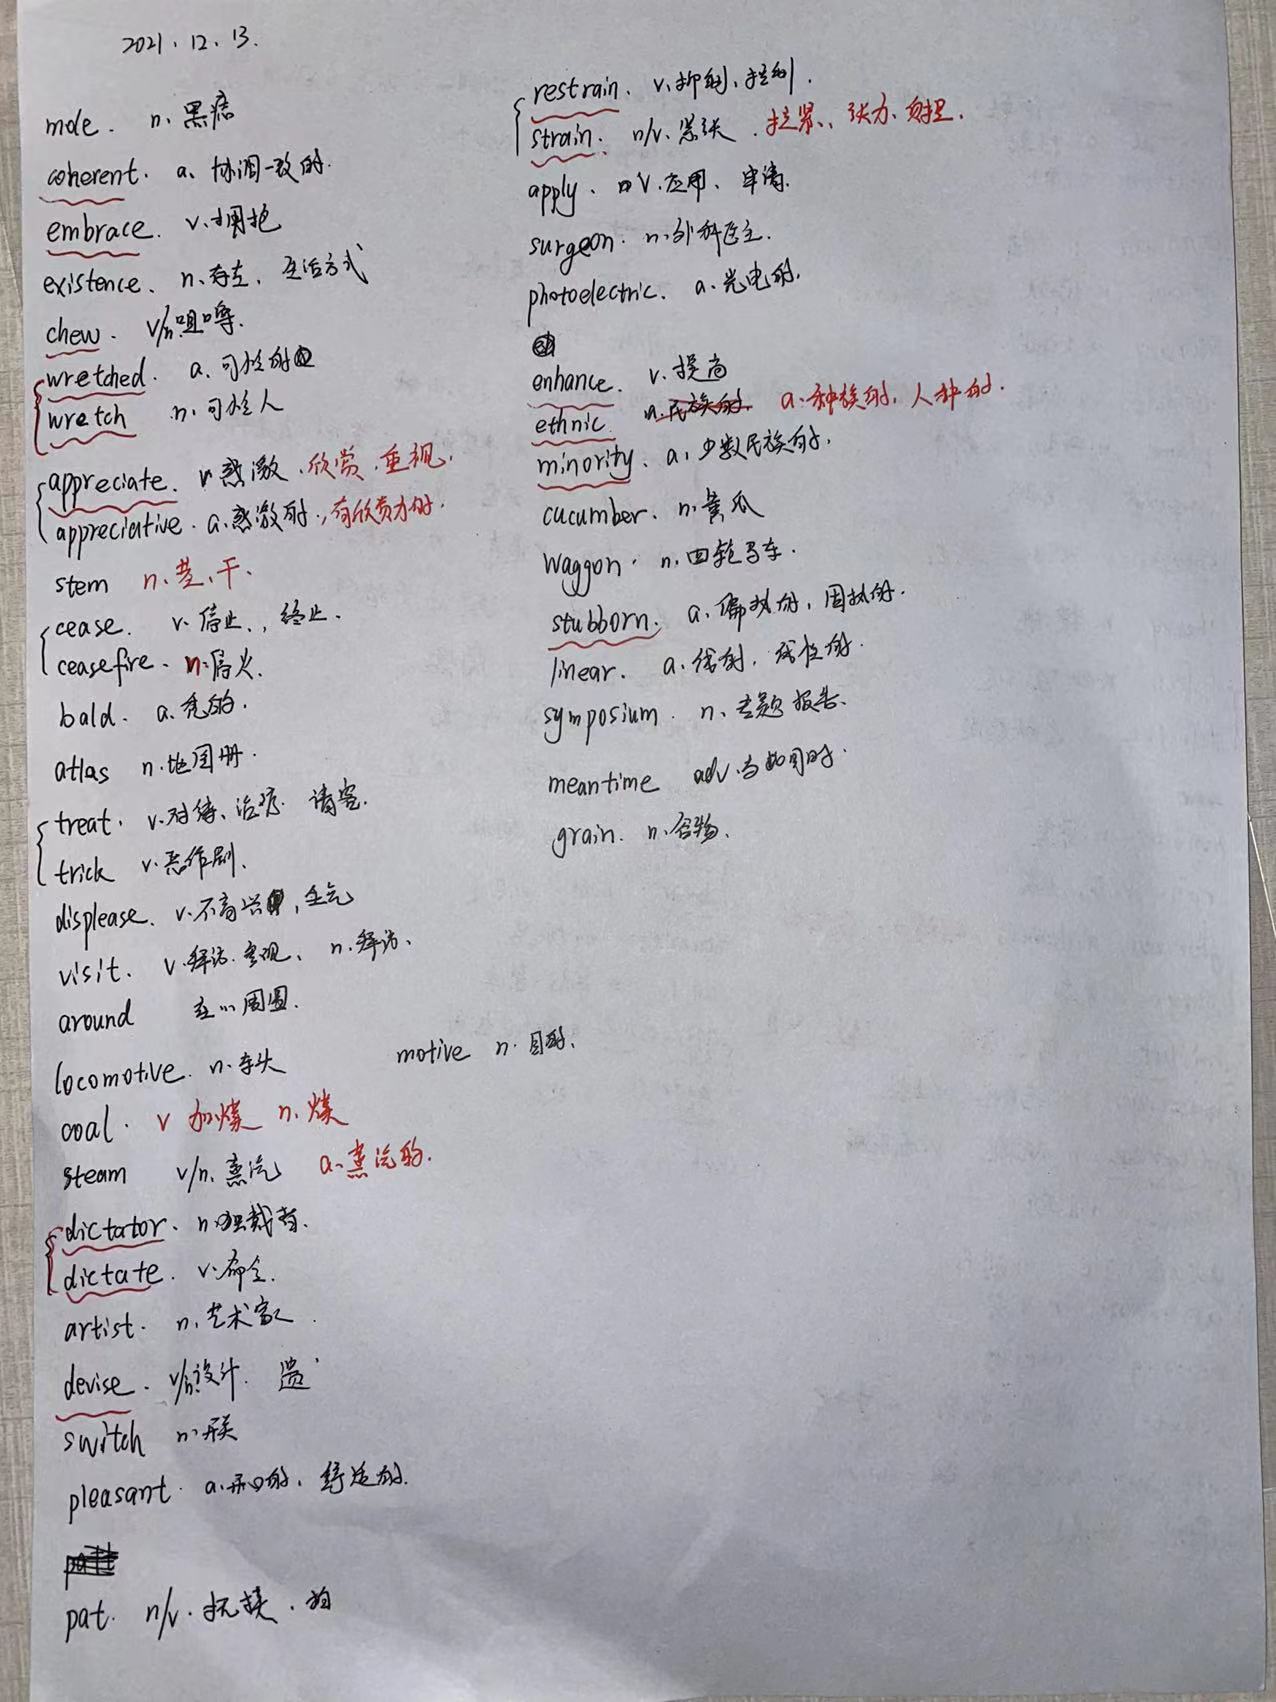 2021.12.13.
mole. n.黑痣
coherent. a.协调一致的.
embrace. v.拥抱
existence. n.存在, 生活方式
chew. v/n.咀嚼.
wretched. a.可怜的
wretch n.可怜人
appreciate. v.感激.欣赏.重视.
appreciative. a.感激的.,有欣赏力的.
stem n.茎、干.
cease. v.停止.,终止.
ceasefire. n.停火.
bald. a.秃的.
atlas n.地图册.
treat. v.对待、治疗. 请客.
trick v.恶作剧.
displease. v.不高兴,生气
visit. v.拜访.参观、n.拜访、
around 在…周围.
locomotive. n.车头
motive n.目的、
coal. v 加煤 n.煤
steam v/n.蒸汽 a.蒸汽的.
dictator. n.独裁者.
dictate. v.命令.
artist. n.艺术家.
devise. v/n.设计. 遗
switch n.开关
pleasant. a.开心的, 舒适的.
pat. n/v.抚摸.拍
restrain. v.抑制、控制.
strain. n/v.紧张.拉紧、张力、负担.
apply. v.应用、申请.
surgeon. n.外科医生.
photoelectric. a.光电的.
enhance. v.提高
ethnic a.民族的. a.种族的, 人种的.
minority. a.少数民族的.
cucumber. n.黄瓜
waggon. n.四轮马车.
stubborn. a.偏执的,固执的.
linear. a.线的, 线性的.
symposium. n.专题报告.
meantime adv.与此同时.
grain. n.谷物.